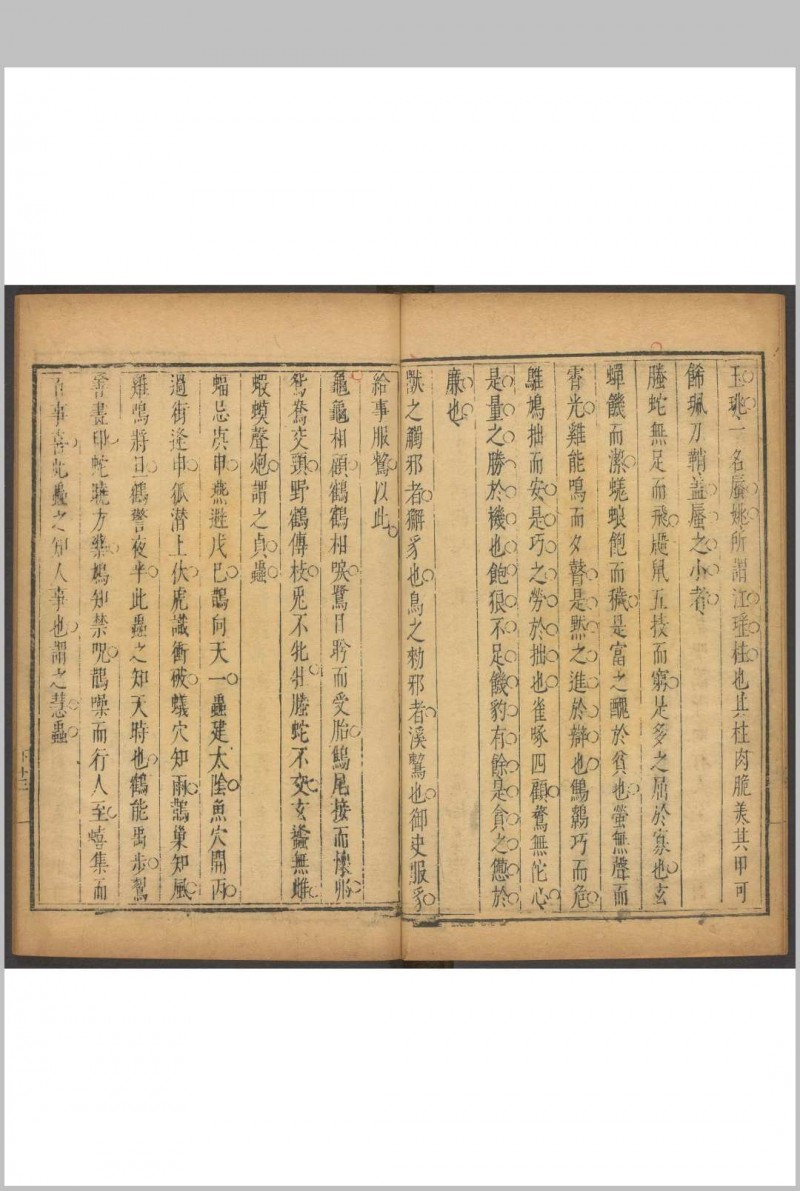 玉珧一名蜃姚所謂江瑤柱也其柱肉脆美其甲可
飾珮刀鞘蓋蜃之小者
螣蛇無足而飛鼯鼠五技而窮是多之屈於寡也玄
蟬饑而潔蜣蜋飽而穢是富之醜於貧也螢無聲而
宵光雞能鳴而夕瞽是黙之進於辯也鷦鷯巧而危
鵻鳩拙而安是巧之勞於拙也雀啄四顧鶩無佗心
是量之勝於機也飽狼不足饑豹有餘是貪之憊於
廉也
獸之觸邪者獬豸也鳥之勑邪者溪鷘也御史服豸
給事服鷘以此
龜龜相顧鶴鶴相唳鷺目聆而受胎鰞尾接而懷卵
鴛鴦交頭野鶴傳枝兎不牝牡螣蛇不交玄蠽無雌
蝦蟆聲炮謂之貞蟲
蝠忌庚申燕避戊巳鵲向天一蟲建太陰魚穴開丙
過街逢申狐潜上伏虎識衝破蟻穴知雨鵲巢知風
雞鳴將旦鶴警夜半此蟲之知天時也鶴能禹步鴷
善畫印蛇曉方藥鴆知禁呪鵲噪而行人至蟢集而
百事喜此蟲之知人事也謂之慧蟲
下十三